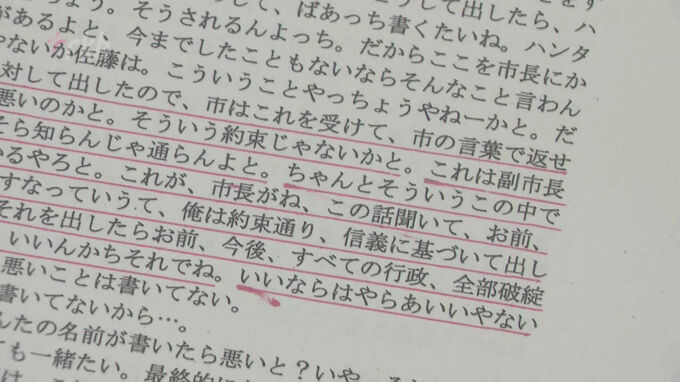 よう。そうされるんよっち。だからここを市長にか
して出したら、ハ
ばあっち書くたいね。ハンタ
があるよと、今までしたこともないならそんなこと言わん
ゃないか佐藤は。こういうことやっちょうやねーかと。だ
対して出したので、市はこれを受けて、市の言葉で返せ
悪いのかと。そういう約束じゃないかと。これは副市長
そら知らんじゃ通らんよと。ちゃんとそういうこの中で
るやろと。これが、市長がね、この話聞いて、お前、
すなっていうて、俺は約束通り、信義に基づいて出し
それを出したらお前、今後、すべての行政、全部破綻
いいんかちそれでね。いいならはやらあいいやない
悪いことは書いてない。
書いてないから…。
んたの名前が書いたら悪いと?いや、
ても一緒たい。最終的に